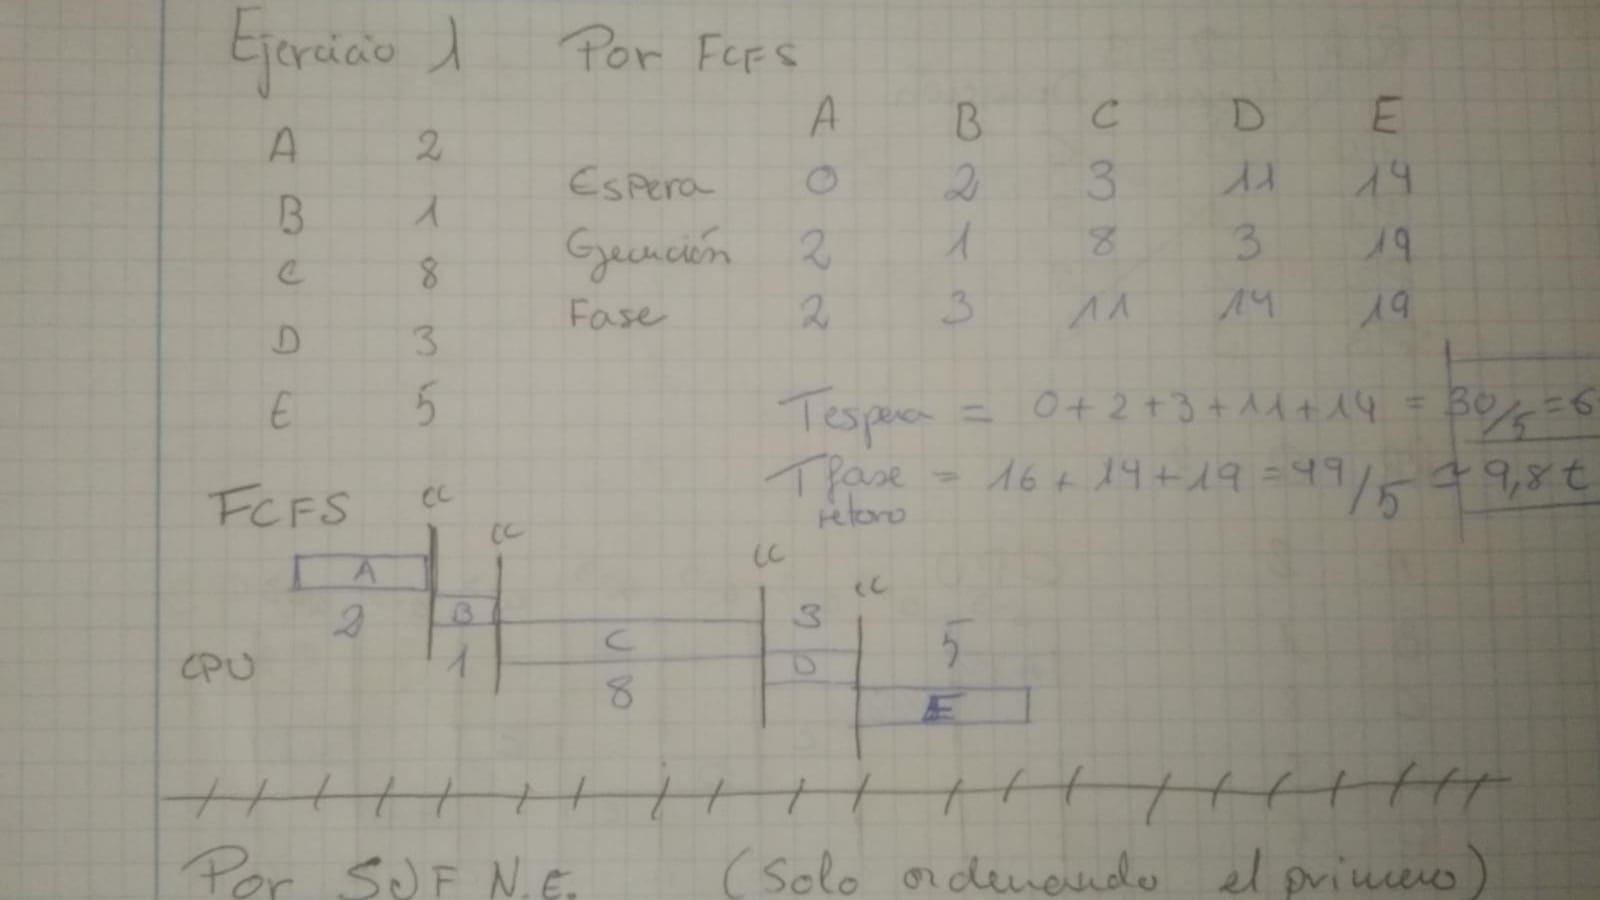 Ejercicio 1 Por FCFS
A B C D E
A 2
Espera 0 2 3 11 14
B 1
Ejecución 2 1 8 3 19
C 8
Fase 2 3 11 14 19
D 3
E 5
Tespera = 0+2+3+11+14 = 30/5=6
Tfase = 16+14+19=49/5 = 9,8 t
retoro
FCFS
cc
cc
cc
cc
A
2
B
1
C
8
3
D
5
E
CPU
Por SJF N.E. (Solo ordenando el primero)